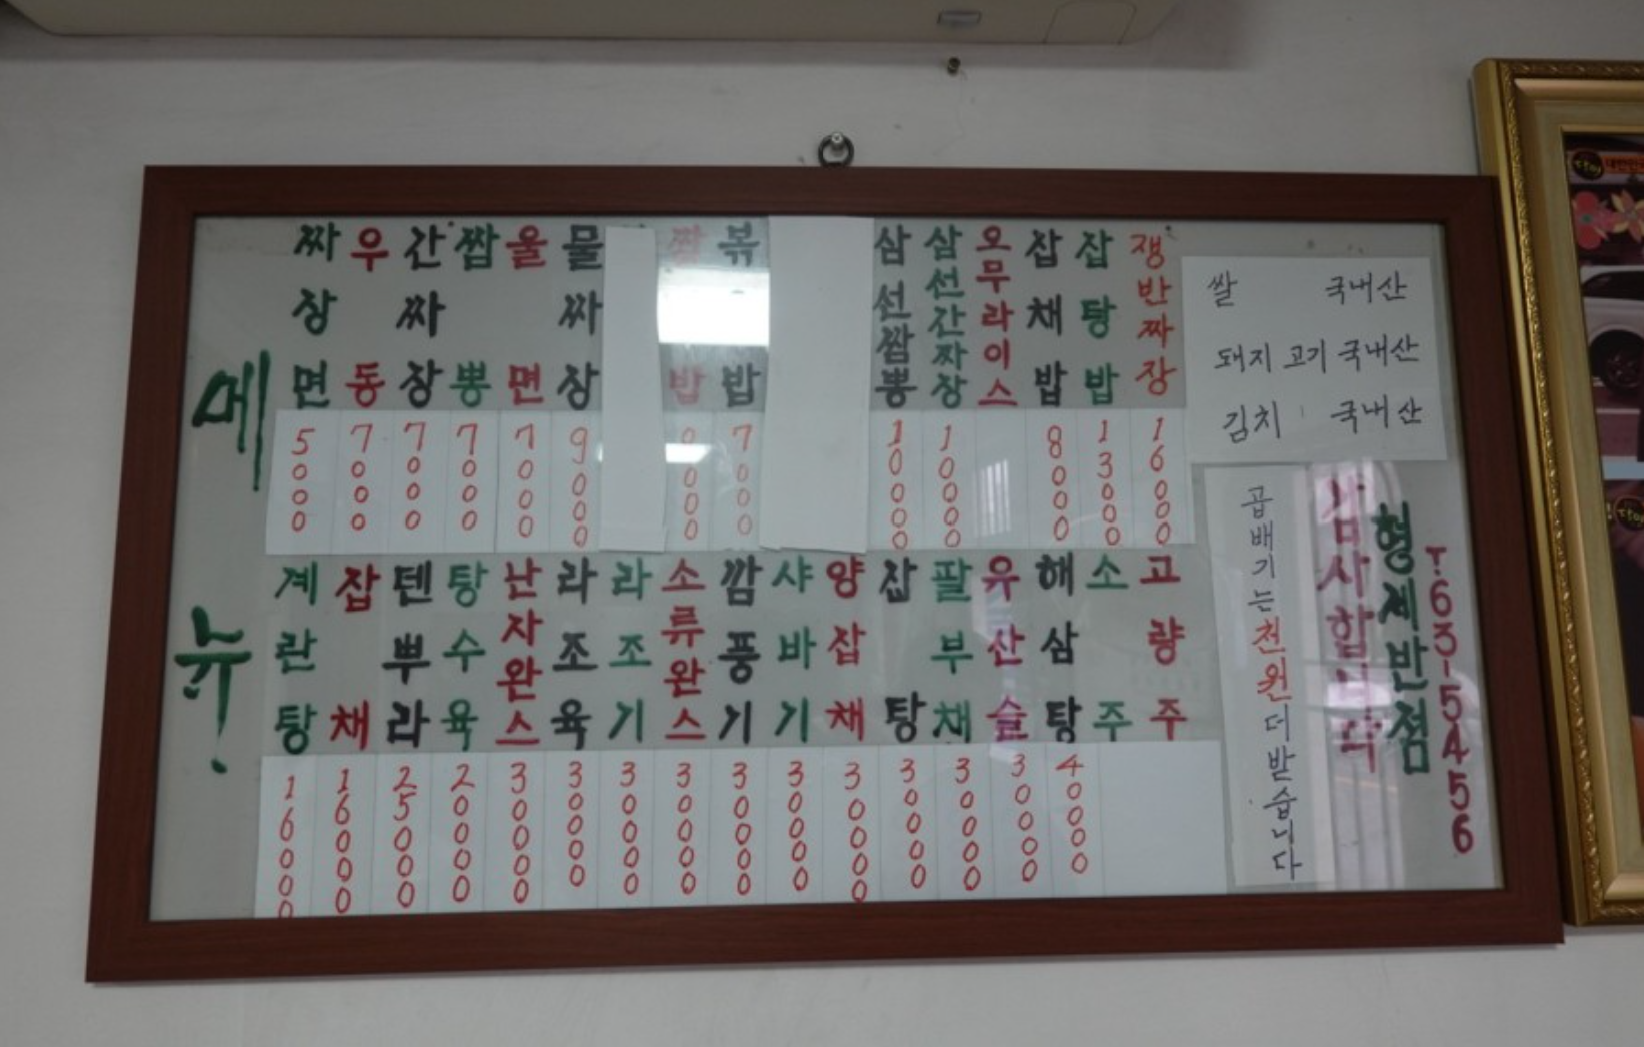 메뉴!
짜장면 5000
우동 7000
간짜장 7000
짬뽕 7000
울면 7000
물짜장 9000
볶밥 7000
삼선짬뽕 10000
삼선간짜장 10000
오무라이스
잡채밥 8000
잡탕밥 13000
쟁반짜장 16000
계란탕 16000
잡채 16000
텐뿌라 25000
탕수육 20000
난자완스 30000
라조육 30000
라조기 30000
소류완스 30000
깜풍기 30000
샤바기 30000
양잡채 30000
잡탕 30000
팔부채 30000
유산슬 30000
해삼탕 40000
소주
고량주
쌀 국내산
돼지고기 국내산
김치 국내산
곱배기는 천원 더 받습니다
감사합니다
형제반점
T.631-5456